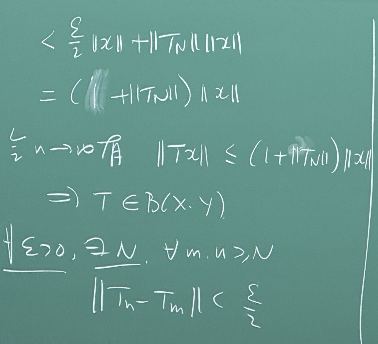 < ε/2 ||x|| + ||T_N|| ||x||
= (1 + ||T_N||) ||x||
令 n→∞ 有 ||Tx|| ≤ (1+||T_N||) ||x||
⇒ T ∈ B(X.Y)
∀ ε>0, ∃ N, ∀ m.n ≥ N
||T_n - T_m|| < ε/2